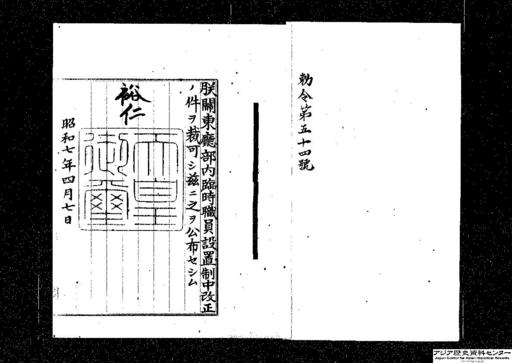 勅令第五十四號
朕關東廳部内臨時職員設置制中改正
ノ件ヲ裁可シ茲ニ之ヲ公布セシム
裕仁
天皇
御璽
昭和七年四月七日
アジア歴史資料センター
Japan Center for Asian Historical Records